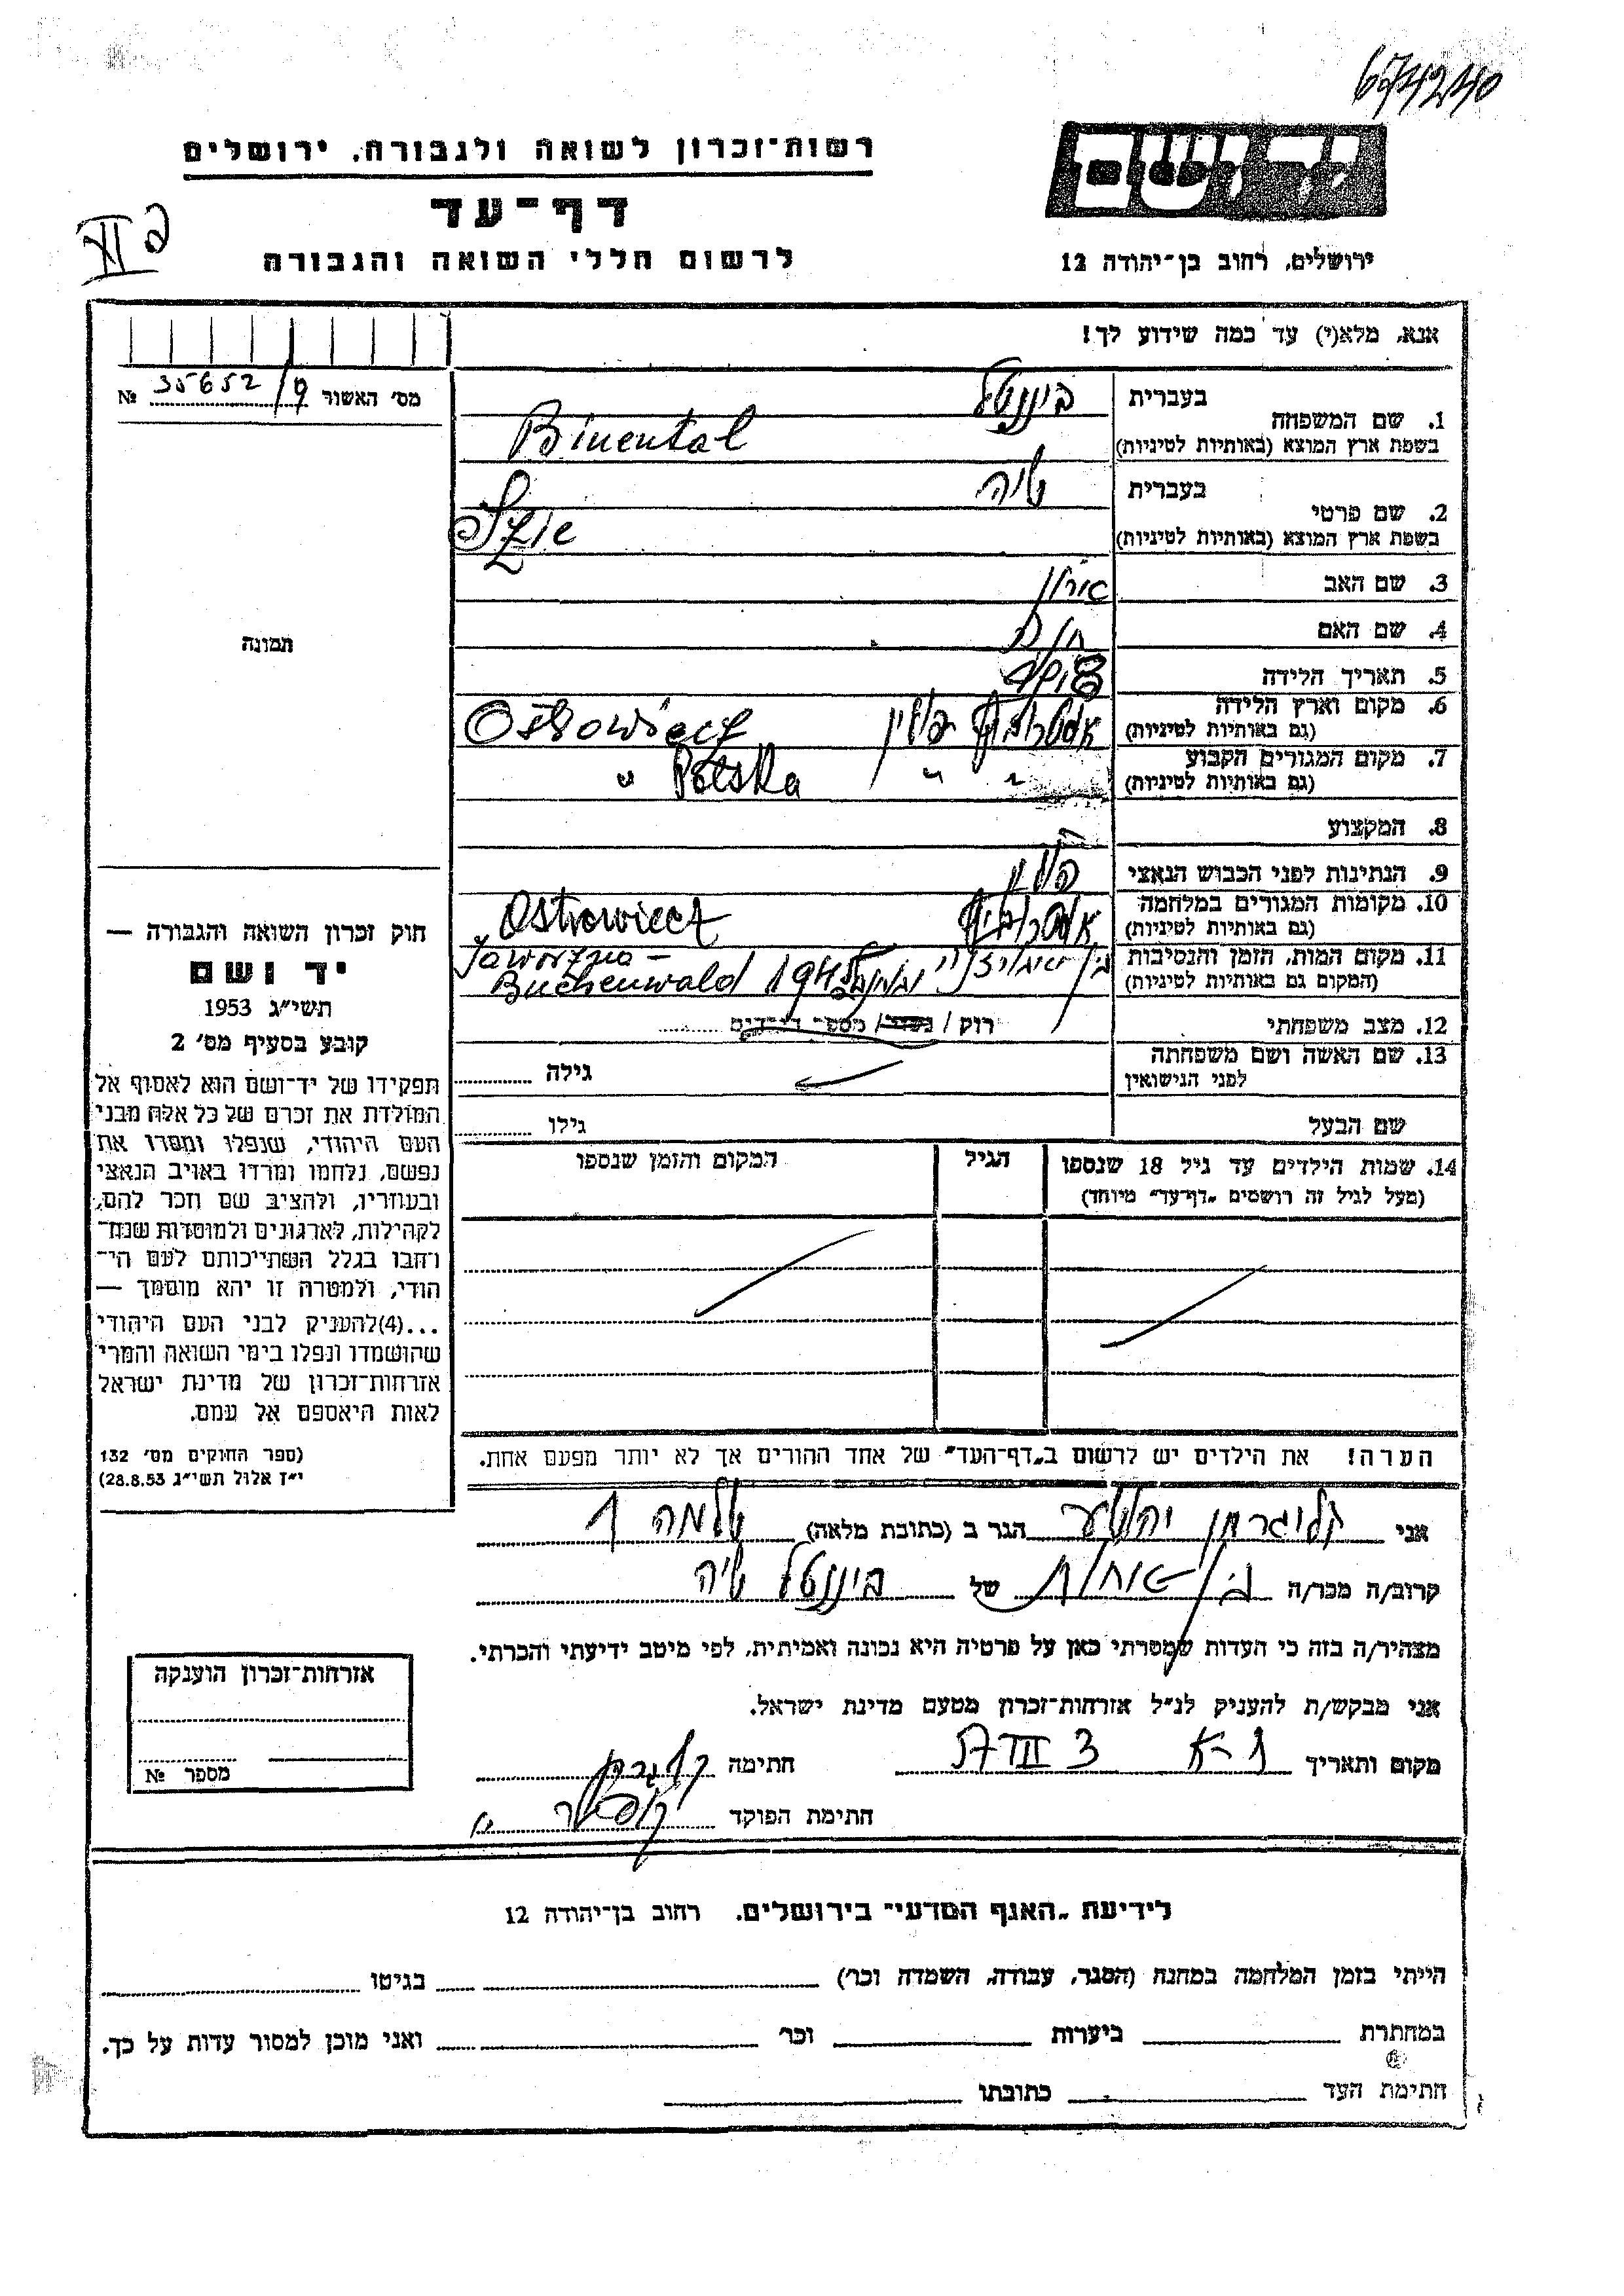 674240
רשות־זכרון לשואה ולגבורה, ירושלים
יד ושם
דף־עד
לרשום חללי השואה והגבורה
ירושלים, רחוב בן־יהודה 12
אנא, מלא(י) עד כמה שידוע לך!
מס׳ האשור 35652/9 №
1. שם המשפחה בעברית בינענטל
בשפת ארץ המוצא (באותיות לטיניות) Binental
2. שם פרטי בעברית שיה
בשפת ארץ המוצא (באותיות לטיניות) Szie
3. שם האב אהרון
4. שם האם
5. תאריך הלידה
6. מקום וארץ הלידה (גם באותיות לטיניות) אוסטרוביץ פולין Ostrowiecz
7. מקום המגורים הקבוע (גם באותיות לטיניות) " " Polska "
8. המקצוע
9. הנתינות לפני הכבוש הנאצי פולין
10. מקומות המגורים במלחמה (גם באותיות לטיניות) אוסטרוביץ Ostrowiecz
11. מקום המות, הזמן והנסיבות (המקום גם באותיות לטיניות) Jaworzno – Buchenwald 1945
12. מצב משפחתי רוק / נשוי / מספר הילדים
13. שם האשה ושם משפחתה לפני הנישואין גילה
שם הבעל גילו
14. שמות הילדים עד גיל 18 שנספו הגיל המקום והזמן שנספו
(מעל לגיל זה רושמים „דף־עד״ מיוחד)
הערה! את הילדים יש לרשום ב„דף־העד״ של אחד ההורים אך לא יותר מפעם אחת.
תמונה
חוק זכרון השואה והגבורה —
יד ושם
תשי״ג 1953
קובע בסעיף מס׳ 2
תפקידו של יד־ושם הוא לאסוף אל
המולדת את זכרם של כל אלה מבני
העם היהודי, שנפלו ומסרו את
נפשם, נלחמו ומרדו באויב הנאצי
ובעוזריו, ולהציב שם וזכר להם,
לקהילות, לארגונים ולמוסדות שנח־
רחבו בגלל השתייכותם לעם הי־
הודי, ולמטרה זו יהא מוסמך —
...(4)להעניק לבני העם היהודי
שהושמדו ונפלו בימי השואה והמרי
אזרחות־זכרון של מדינת ישראל
לאות היאספם אל עמם.
(ספר החוקים מס׳ 132
י״ז אלול תשי״ג 28.8.53)
אני קליגרמן יהושע הגר ב (כתובת מלאה) שלמה 1
קרוב/ה מכר/ה של בינענטל שיה
מצהיר/ה בזה כי העדות שמסרתי כאן על פרטיה היא נכונה ואמיתית, לפי מיטב ידיעתי והכרתי.
אני מבקש/ת להעניק לנ״ל אזרחות־זכרון מטעם מדינת ישראל.
מקום ותאריך 3 III 57 חתימה
חתימת הפוקד
אזרחות־זכרון הוענקה
מספר №
לידיעת „האגף המדעי״ בירושלים, רחוב בן־יהודה 12
הייתי בזמן המלחמה במחנה (הסגר, עבודה, השמדה וכר׳) בגיטו
במחתרת ביערות וכר׳ ואני מוכן למסור עדות על כך.
חתימת העד כתובתו